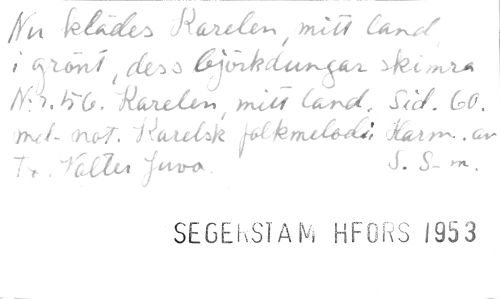 Nu klädes Karelen, mitt land,
i grönt, dess björkdungar skimra
N:r. 56. Karelen, mitt land. Sid. 60.
met not. Karelsk folkmelodi Harm. av
Tx. Valter Juva. S. S-m.
SEGERSTAM HFORS 1953